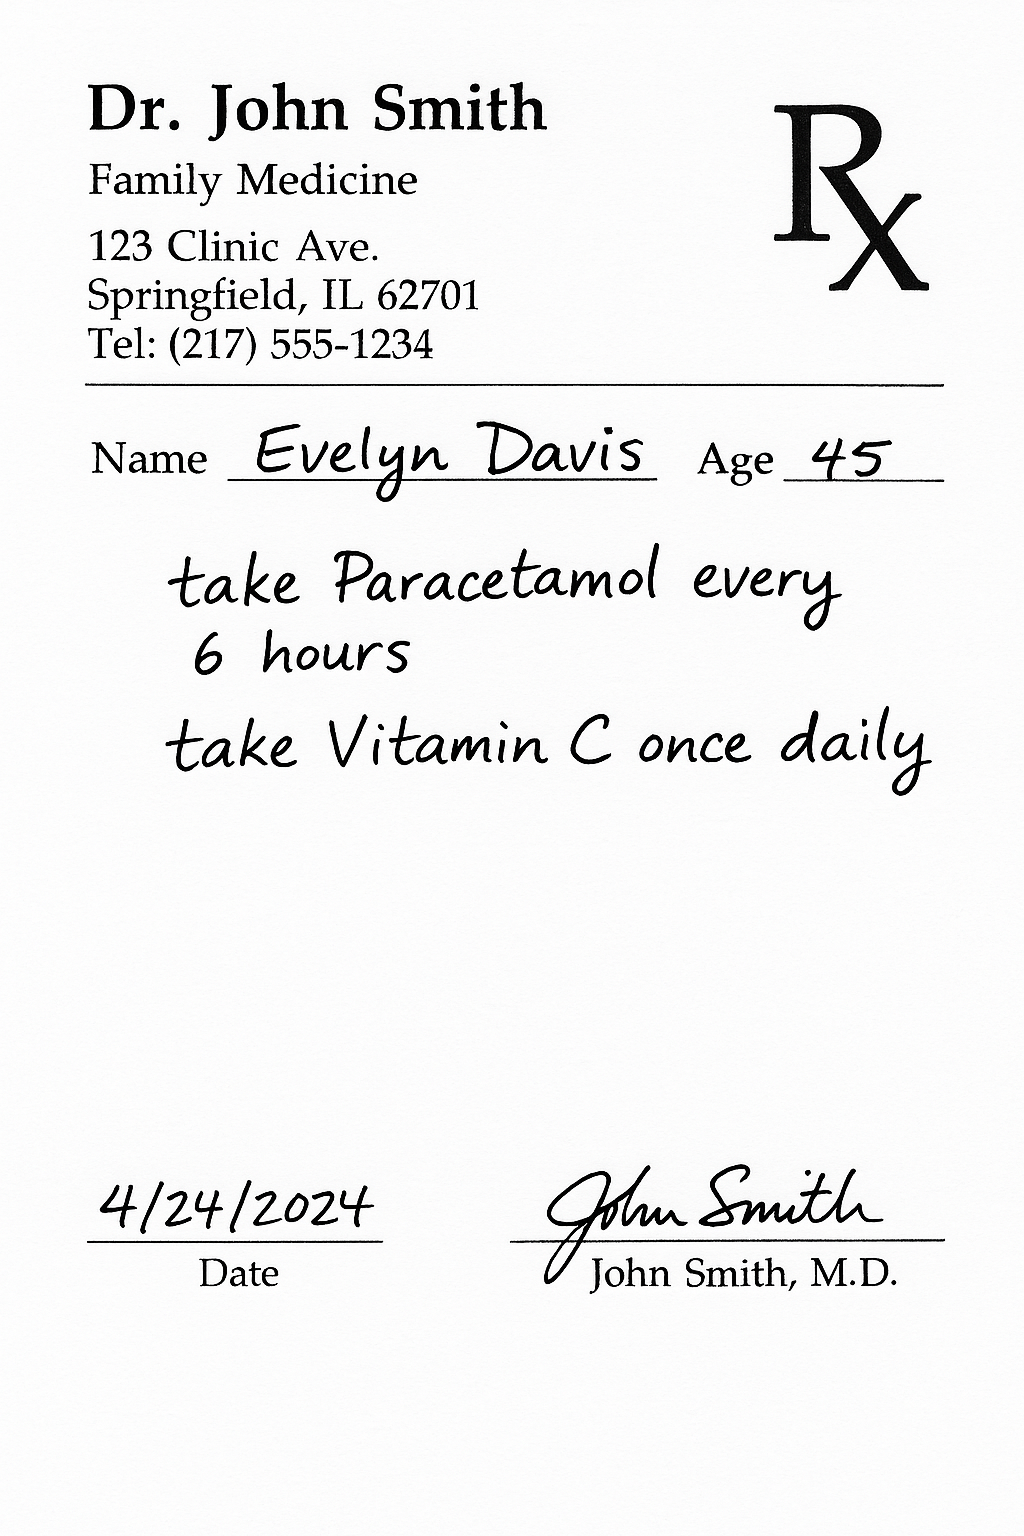 Dr. John Smith
Family Medicine
123 Clinic Ave.
Springfield, IL 62701
Tel: (217) 555-1234
Rx
Name Evelyn Davis Age 45
take Paracetamol every
6 hours
take Vitamin C once daily
4/24/2024 John Smith
Date John Smith, M.D.